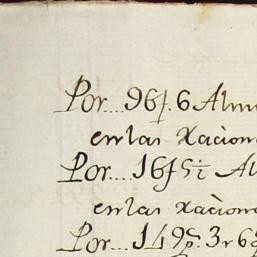 Por... 96f. 6 Alm
en las Raciona
Por... 16f 5½ Al
en las raciona
Por... 149f. 3 r 6